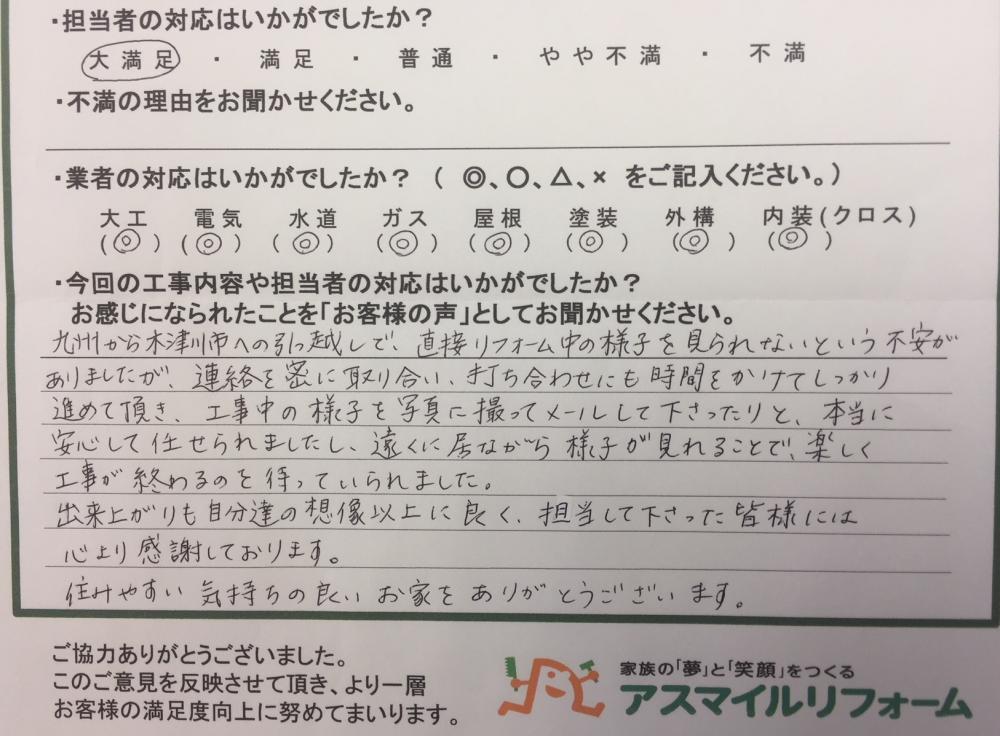 ・担当者の対応はいかがでしたか？
大満足 ・ 満足 ・ 普通 ・ やや不満 ・ 不満
・不満の理由をお聞かせください。
・業者の対応はいかがでしたか？（ ◎、〇、△、× をご記入ください。）
大工 電気 水道 ガス 屋根 塗装 外構 内装(クロス)
(◎) (◎) (◎) (◎) (◎) (◎) (◎) (◎)
・今回の工事内容や担当者の対応はいかがでしたか？
お感じになられたことを「お客様の声」としてお聞かせください。
九州から木津川市への引っ越しで、直接リフォーム中の様子を見られないという不安が
ありましたが、連絡を密に取り合い、打ち合わせにも時間をかけてしっかり
進めて頂き、工事中の様子を写真に撮ってメールして下さったりと、本当に
安心して任せられましたし、遠くに居ながら様子が見れることで、楽しく
工事が終わるのを待っていられました。
出来上がりも自分達の想像以上に良く、担当して下さった皆様には
心より感謝しております。
住みやすい気持ちの良いお家をありがとうございます。
ご協力ありがとうございました。
このご意見を反映させて頂き、より一層
お客様の満足度向上に努めてまいります。
家族の「夢」と「笑顔」をつくる
アスマイルリフォーム